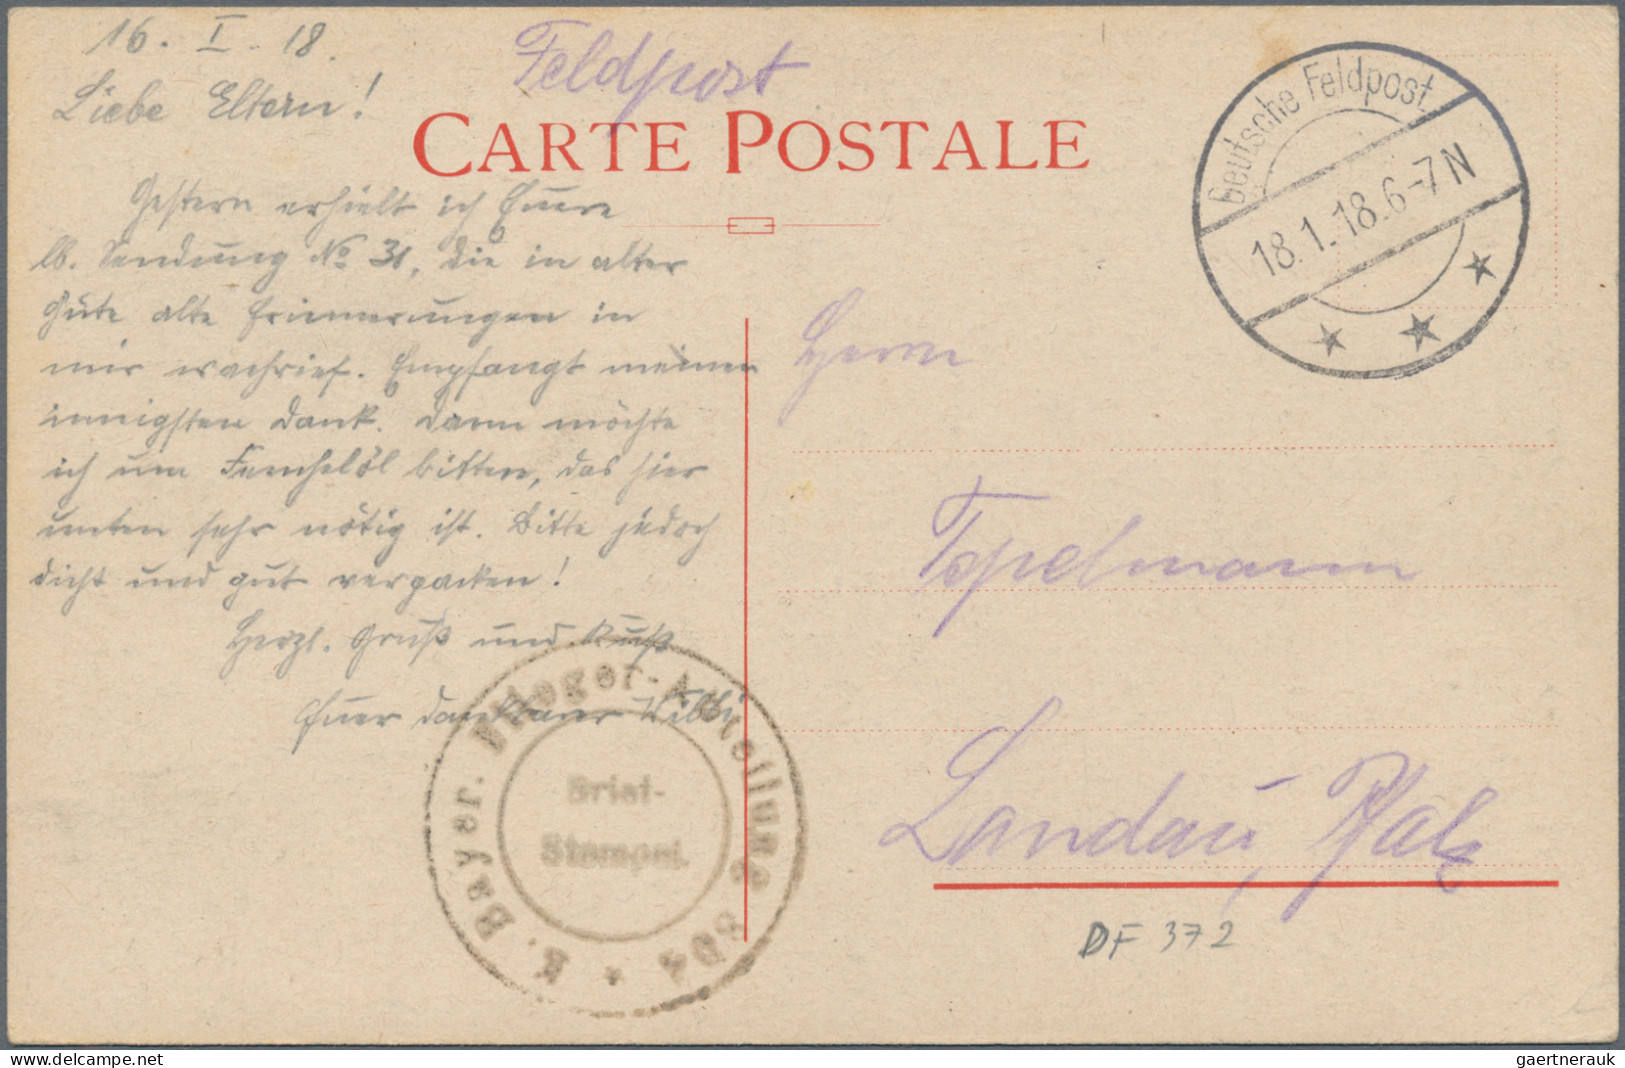 16. I. 18.
Liebe Eltern!
Feldpost
CARTE POSTALE
Deutsche Feldpost
18.1.18.6-7N
Gestern erhielt ich Euere
lb. Sendung No 31, die in alter
Güte alte Erinnerungen in
mir wachrief. Empfangt meinen
innigsten Dank. Dann möchte
ich um Fenchelöl bitten, das hier
unten sehr nötig ist. Bitte jedoch
dicht und gut verpacken!
Herzl. Gruß und Kuß
Euer dankbarer Willi
Herrn
Topelmann
Landau, Pfalz
K. Bayer. Flieger-Abteilung 304
Brief-
Stempel.
DF 372
gaertnerauk